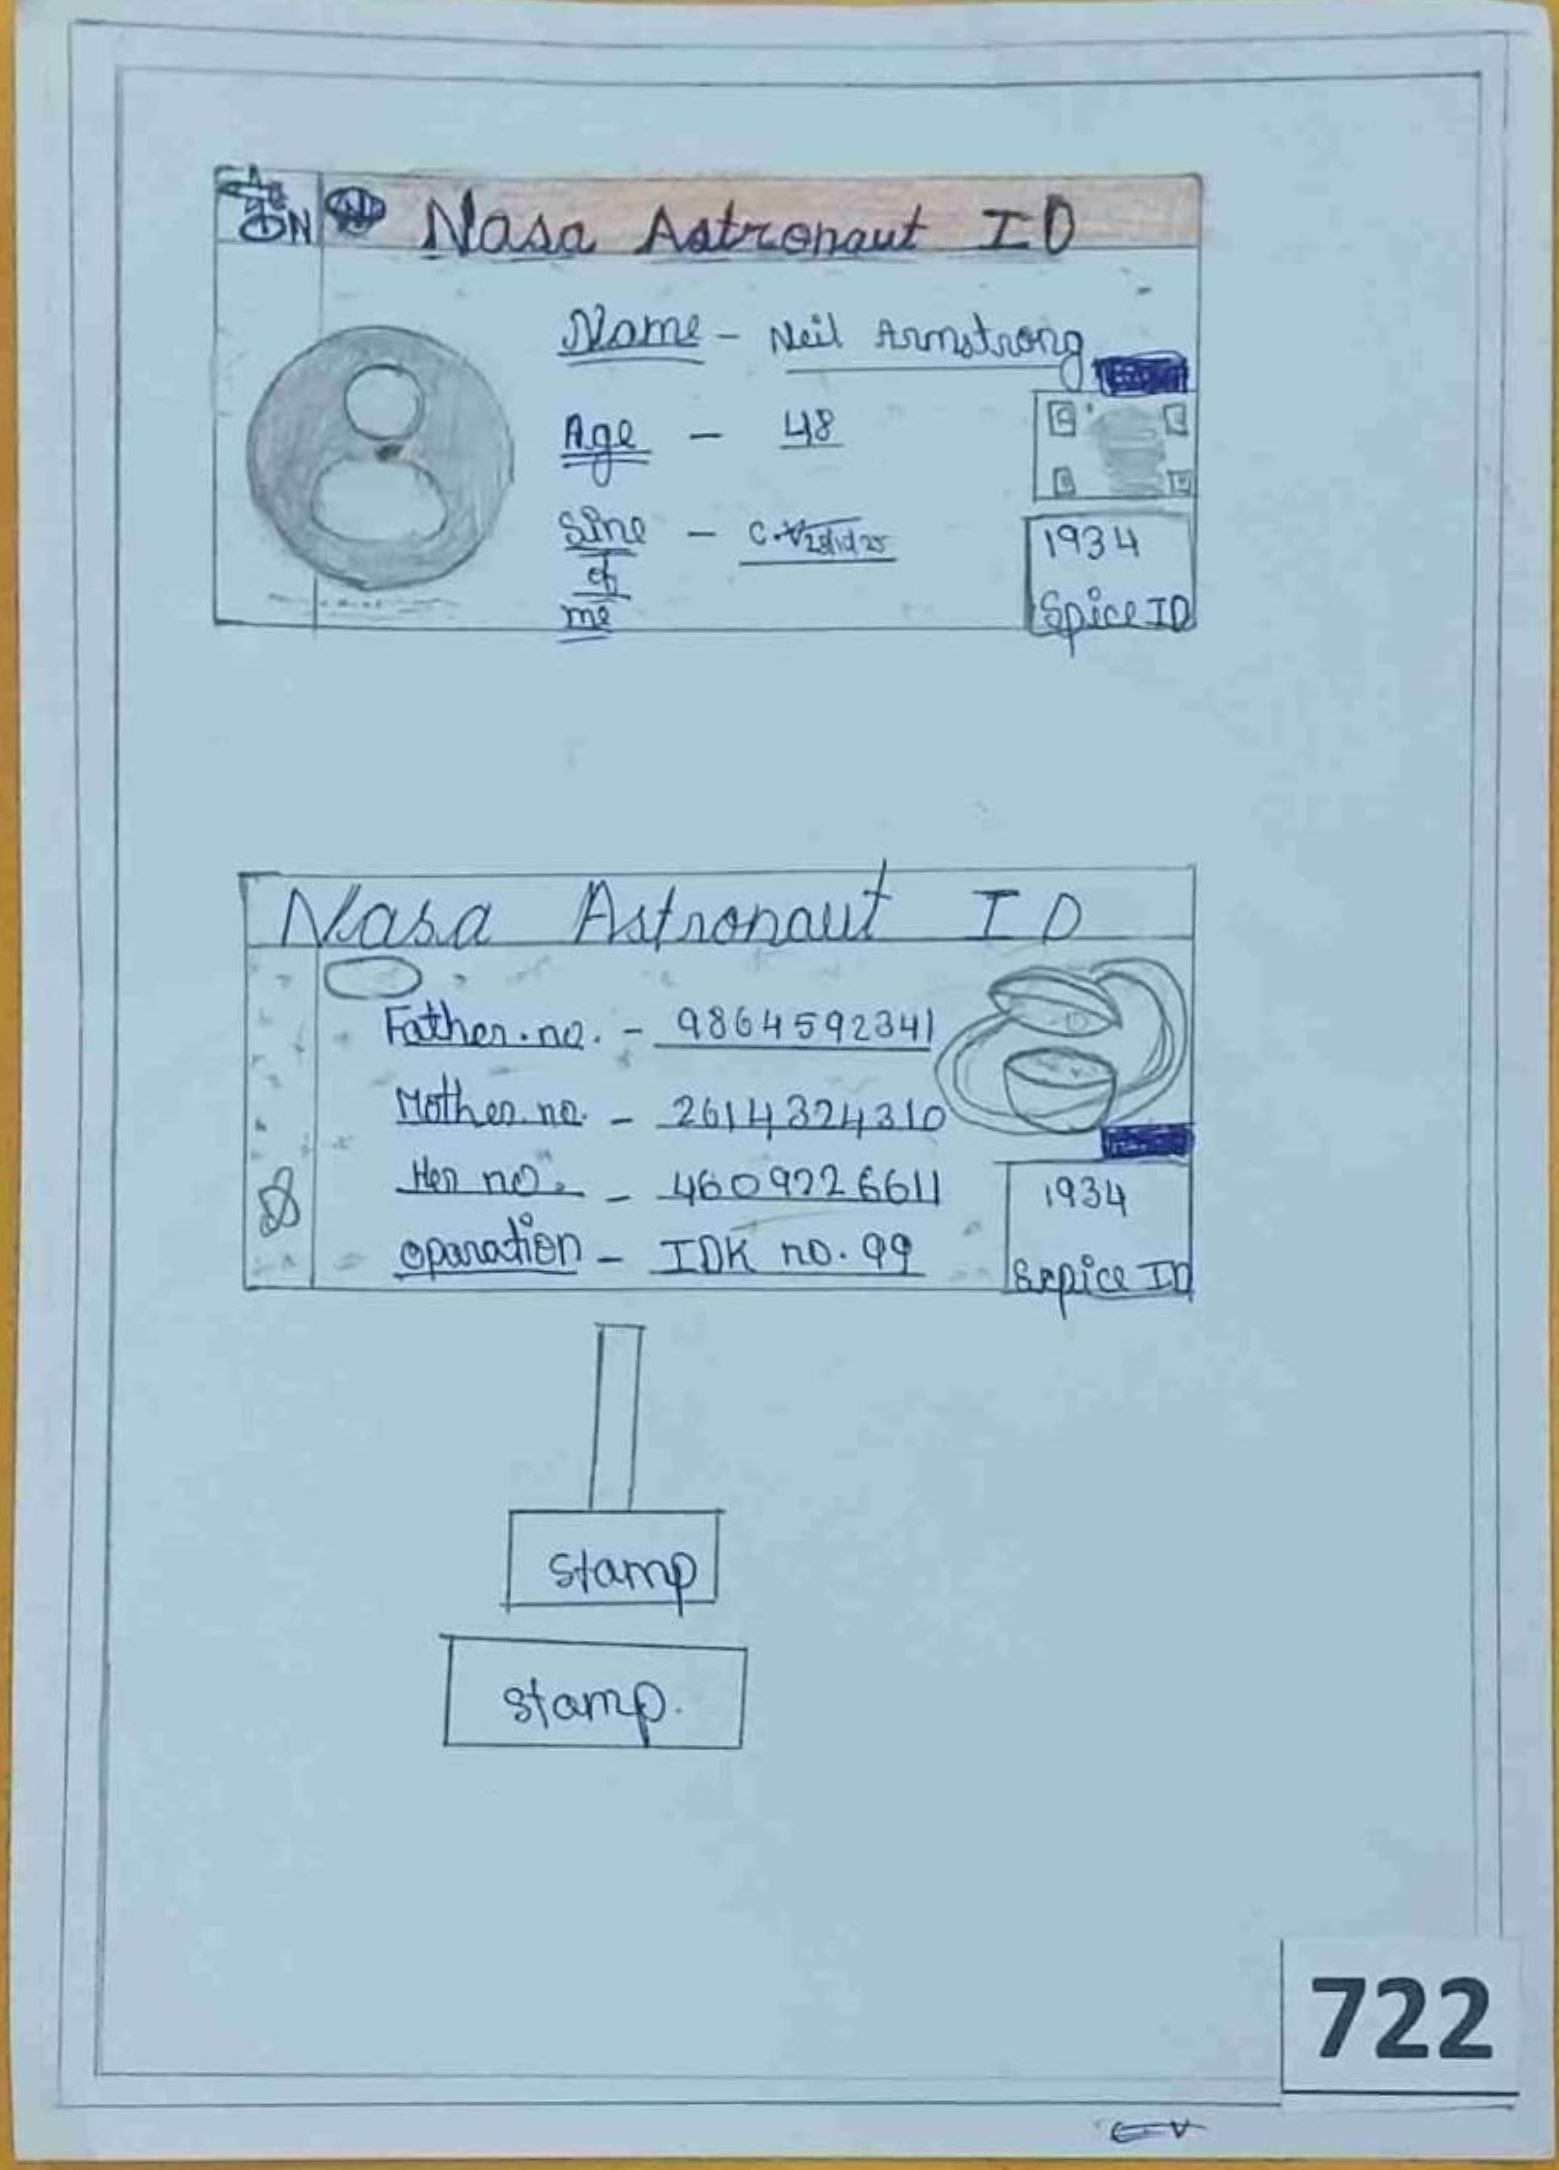 ON N Nasa Astronaut ID
Name - Neil Armstrong
Age - 48
Sine - C.
of
me
1934
Spice ID
Nasa Astronaut ID
Father.no. - 9864592341
Mother.no. - 2614324310
Her no. - 4609226611
oparation - IDK no. 99
1934
Sepice ID
stamp
stamp.
722